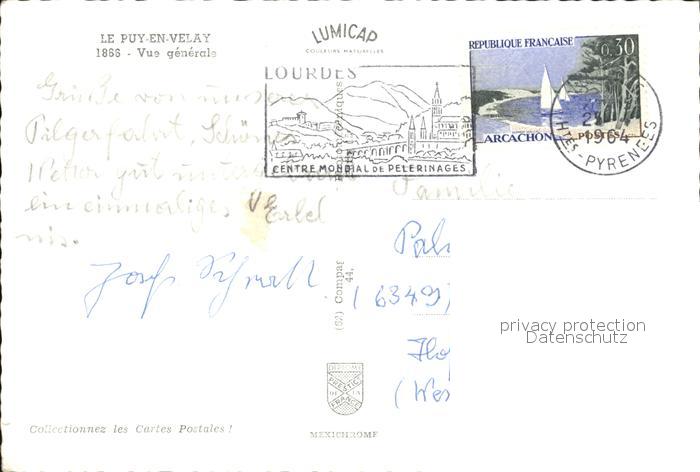 LE PUY-EN-VELAY
1866 - Vue générale
LUMICAP
COULEURS NATURELLES
LOURDES
CENTRE MONDIAL DE PELERINAGES
REPUBLIQUE FRANÇAISE
0,30
ARCACHON
POSTES
1964
HTES-PYRENEES
Grüße von unserer
Pilgerfahrt. Schönes
Wetter gut
ein einmaliges Erleb
nis.
Familie
Josef
(6349)
(Wes
(62) Compag
44,
privacy protection
Datenschutz
DIPLOME
PRESTIGE
DE LA
FRANCE
Collectionnez les Cartes Postales !
MEXICHROME